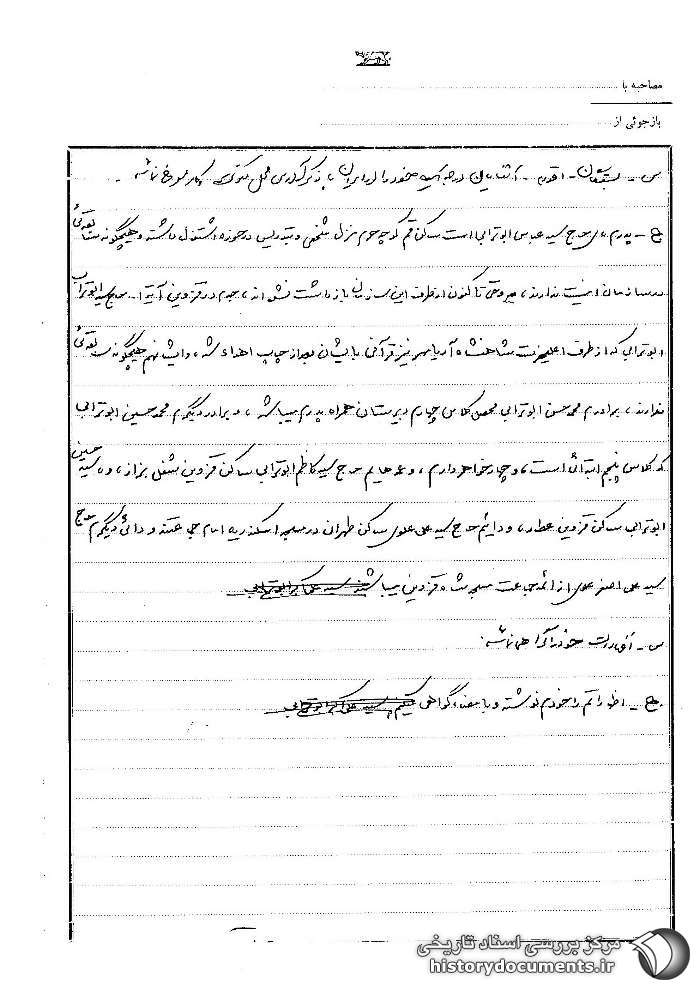 مصاحبه با
بازجوئی از
س - بستگان - اقوام - آشنایان درجه یک خود را در ایران با ذکر آدرس محل سکونت کار مشروح نمائید.
ج - پدرم بنام حاج سید عباس ابوترابی است ساکن قم کوچه حرم منزل شخصی و بتدریس در حوزه اشتغال داشته و هیچگونه سابقه‌ئی
در سازمان امنیت ندارند، و حتی تا کنون از طرف این سازمان بازداشت نشده‌اند، جدم در قزوین آیة‌ا... حاج سید ابوتراب
ابوترابی که از طرف اعلیحضرت شاهنشاه آریامهر نیز قرآنی بایشان بعد از چاپ اهداء شد، و ایشان هم هیچگونه سابقه‌ئی
ندارند، برادرم محمد حسن ابوترابی محصل کلاس چهارم دبیرستان همراه پدرم میباشد، و برادر دیگرم محمد حسین ابوترابی
که کلاس پنجم ابتدائی است، و چهار خواهر دارم، و عموهایم حاج سید کاظم ابوترابی ساکن قزوین شغل بزاز، و سید حسین
ابوترابی ساکن قزوین عطار، و دائیم حاج سید علی علوی ساکن طهران در مسجد اسکندریه امام جماعتند و دائی دیگرم حاج
سید علی اصغر علوی از ائمه جماعت مسجد شاه قزوین میباشند سید علی اکبر ابوترابی
س - اظهارات خود را گواهی نمائید.
ج - اظهاراتم را خودم نوشته و با امضاء گواهی میکنم، سید علی اکبر ابوترابی
مرکز بررسی اسناد تاریخی
historydocuments.ir